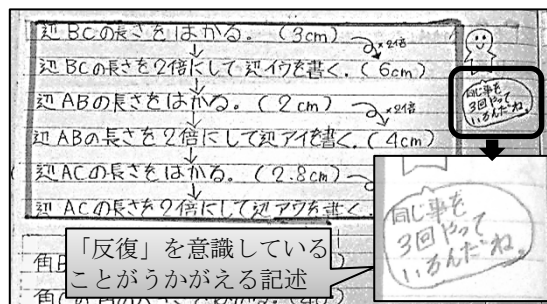 辺BCの長さをはかる。(3cm)
×2倍
↓
辺BCの長さを2倍にして辺イウを書く.(6cm)
↓
辺ABの長さをはかる。(2cm)
×2倍
↓
辺ABの長さを2倍にして辺アイを書く.(4cm)
↓
辺ACの長さをはかる。(2.8cm)
↓
辺ACの長さを2倍にして辺アウを書く
同じ事を
3回やって
いるんだね。
同じ事を
3回やって
いるんだね。
「反復」を意識している
ことがうかがえる記述
角B
角C